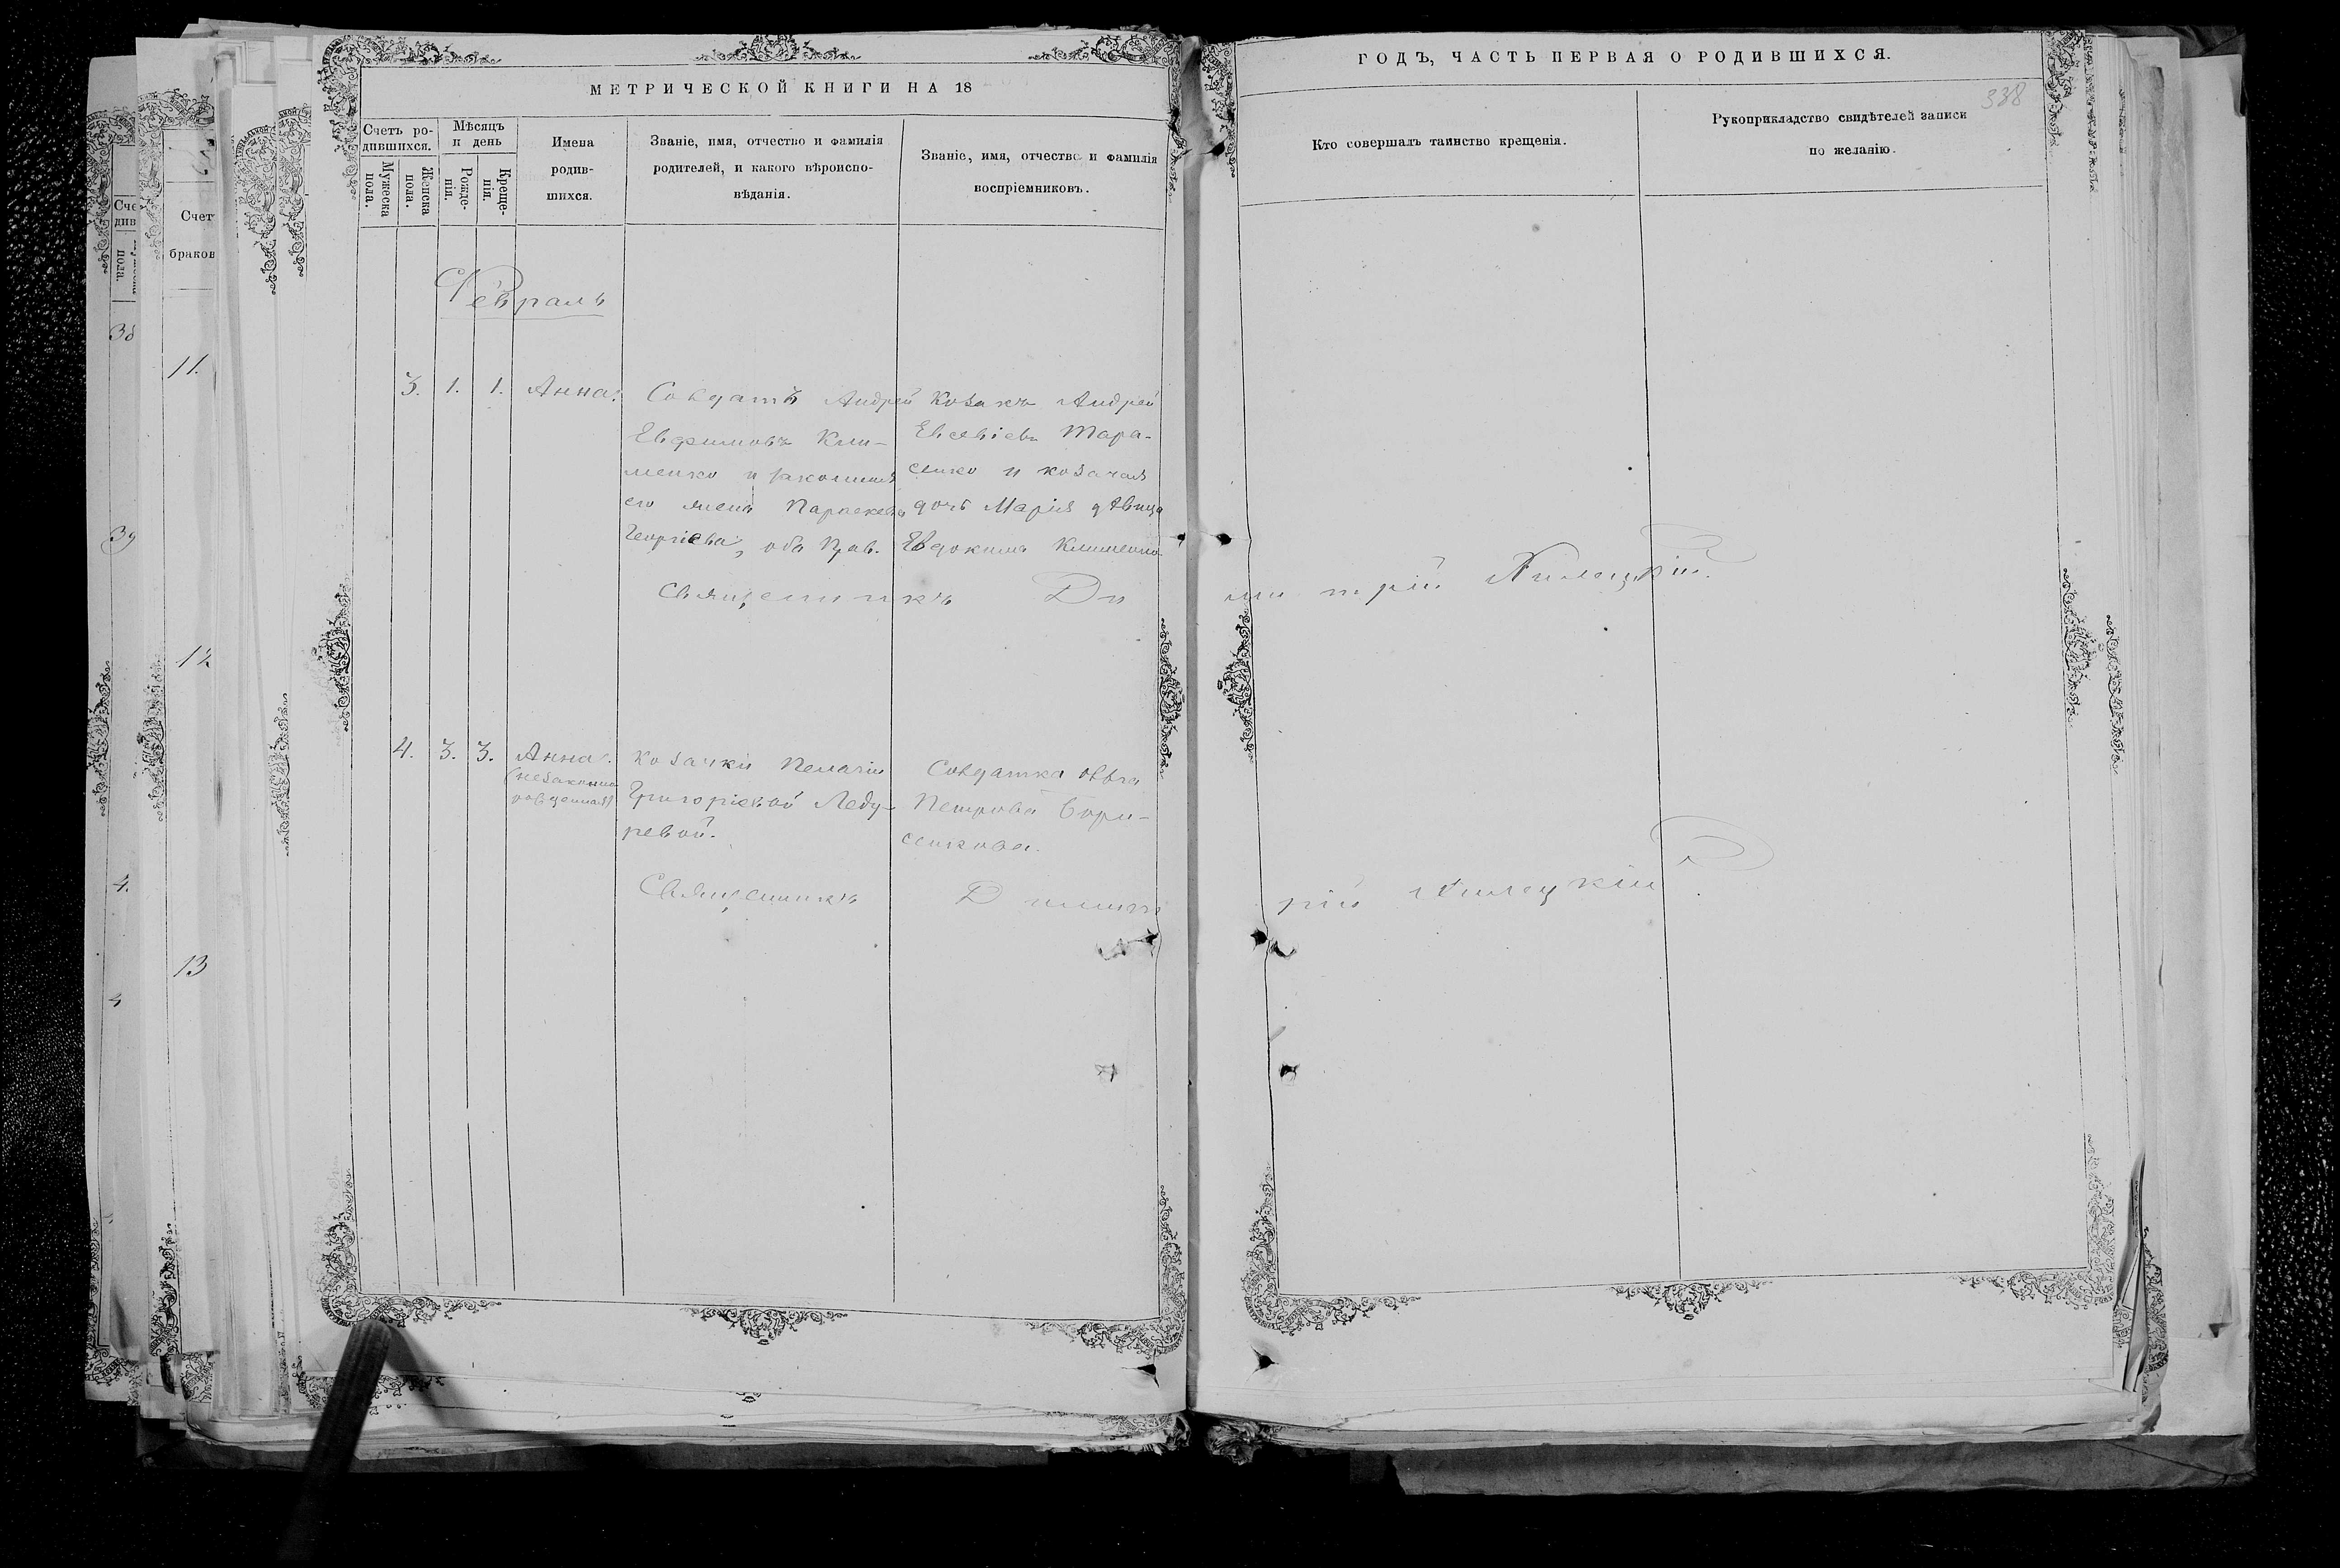 МЕТРИЧЕСКОЙ КНИГИ НА 18
ГОДЪ, ЧАСТЬ ПЕРВАЯ О РОДИВШИХСЯ.
338
Счетъ ро-
дившихся.
Мужеска
пола.
Женска
пола.
Мѣсяцъ
и день
Рожде-
нія.
Креще-
нія.
Имена
родив-
шихся.
Званіе, имя, отчество и фамилія
родителей, и какого вѣроиспо-
вѣданія.
Званіе, имя, отчество и фамилія
воспріемниковъ.
Кто совершалъ таинство крещенія.
Рукоприкладство свидѣтелей записи
по желанію.
Февраль
3. 1. 1. Анна.
Солдатъ Андрей
Евфимовъ Кли-
менко и законная
его жена Параскева
Георгіева, оба Прав.
Козакъ Андрей
Евсевіевъ Тара-
сенко и козачая
дочь Марія дѣвица
Евдокима Клименко
Священникъ Дмитрій
4. 3. 3. Анна.
(незаконно
рожденная)
Козачки Пелагіи
Григоріевой Леду-
ревой.
Солдатка
Петрова Бори-
сенкова.
Священникъ Дмитрій
Сче
див
пола.
38
39
4.
4
Счет
браков
11.
12
13